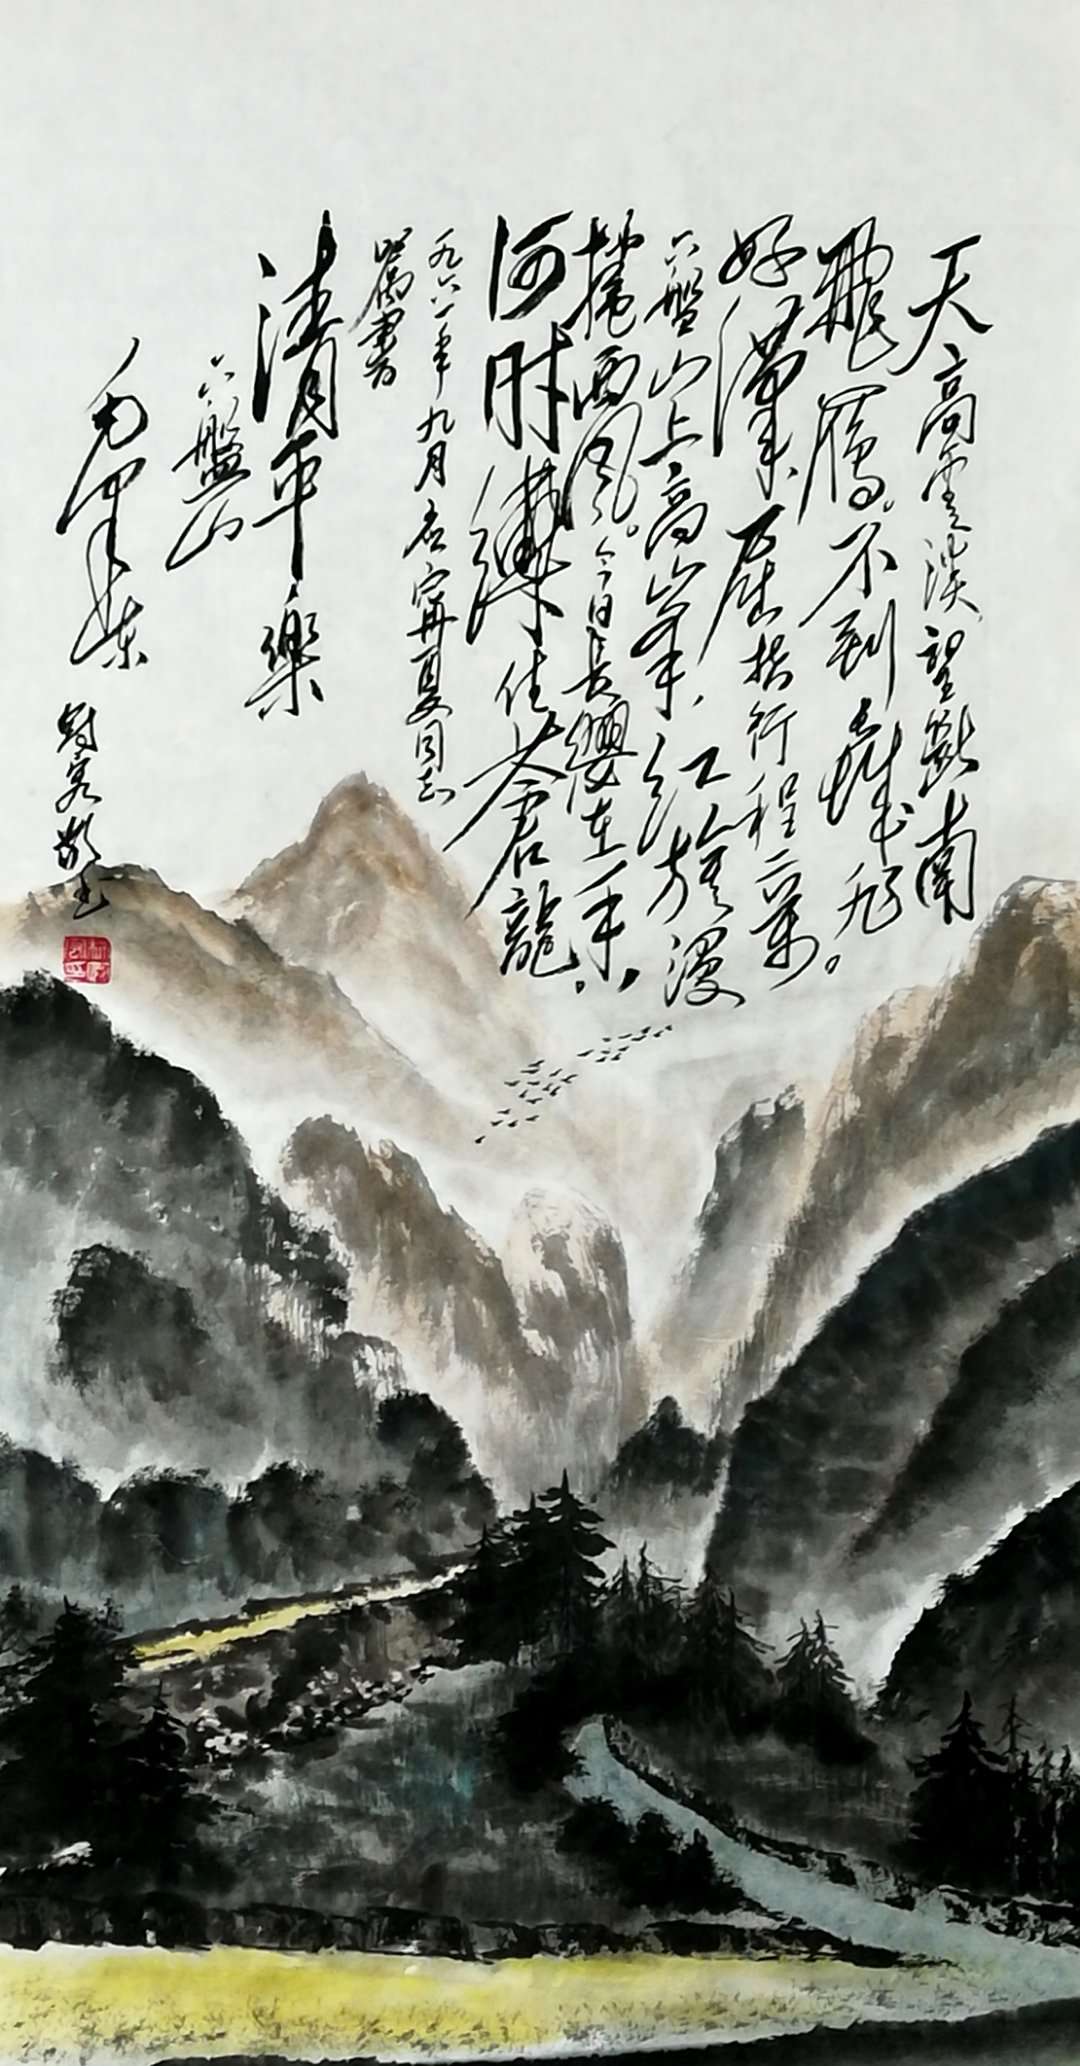 天高雲淡,望斷南
飛雁。不到長城非
好漢,屈指行程二萬。
六盤山上高峰,紅旗漫
捲西風。今日長纓在手,
何時縛住蒼龍。
一九六一年九月應寧夏同志
囑書
清平樂
六盤山
毛澤東